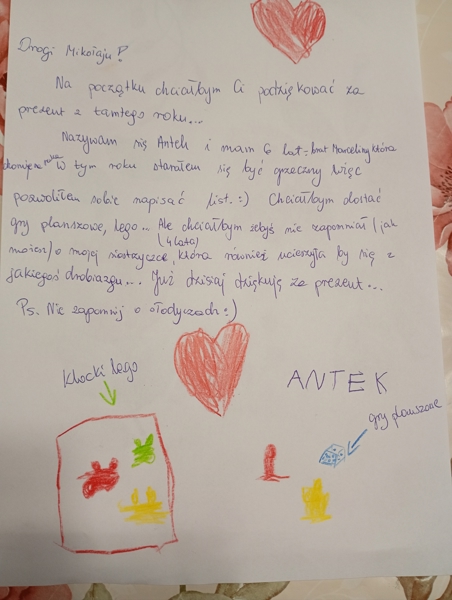 Drogi Mikołaju!
Na początku chciałbym Ci podziękować za
prezent z tamtego roku...
Nazywam się Antek i mam 6 lat - brat Marceliny która
W tym roku starałem się być grzeczny więc
pozwoliłem sobie napisać list. :) Chciałbym dostać
gry planszowe, lego... Ale chciałbym żebyś nie zapomniał (jak
możesz) o mojej siostrzyczce (4 lata) która również ucieszyła by się z
jakiegoś drobiazgu... Już dzisiaj dziękuję za prezent...
Ps. Nie zapomnij o słodyczach :)
klocki lego
ANTEK
gry planszowe